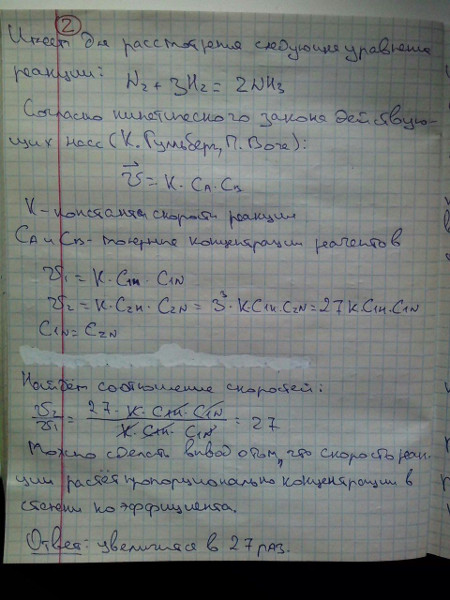 2
Имеем для рассмотрения следующие уравнение
реакции:
N2 + 3H2 = 2NH3
Согласно кинетического закона действую-
щих масс (К. Гульберг, П. Ваге):
v = K · CA · CB
K - константа скорости реакции
CA и CB - молярные концентрации реагентов
v1 = K · C1H · C1N
v2 = K · C2H · C2N = 3³ · K C1H · C2N = 27 K · C1H · C1N
C1N = C2N
Найдём соотношение скоростей:
v2/v1 = 27 · K · C1H · C1N / K · C1H · C1N = 27
Можно сделать вывод о том, что скорость реак-
ции растёт пропорционально концентрации в
степени коэффициента.
Ответ: увеличится в 27 раз.